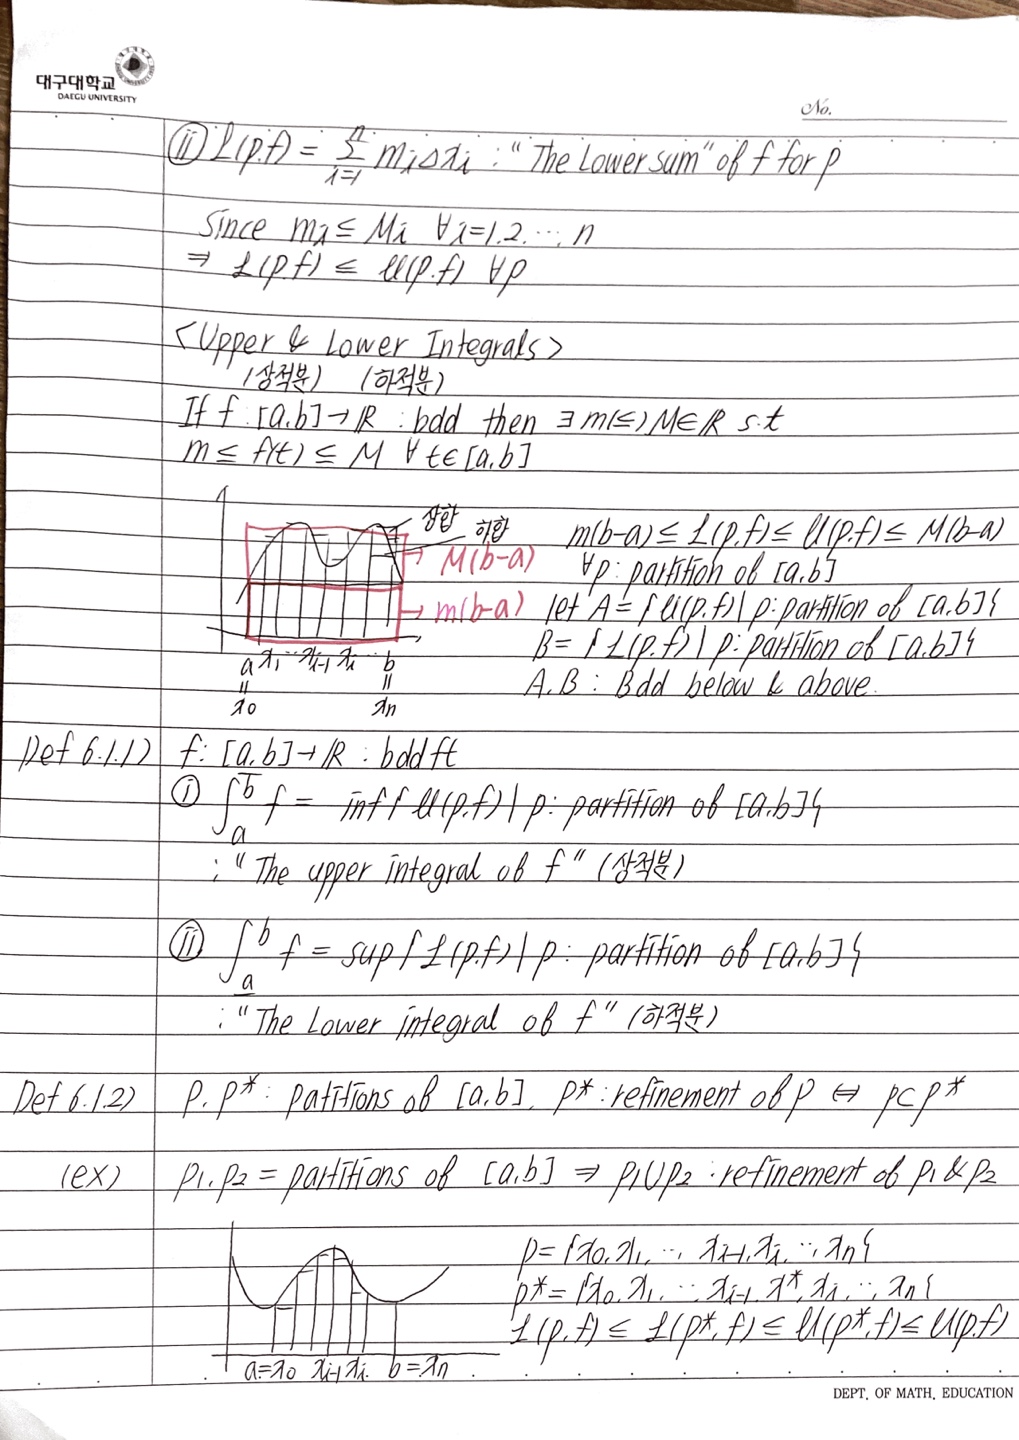 대구대학교
DAEGU UNIVERSITY
No.
ⅱ) L(p.f) = Σ_{i=1}^{n} miΔxi : "The Lower sum" of f for p
Since mi ≤ Mi ∀i=1.2.⋯.n
⇒ L(p.f) ≤ U(p.f) ∀p
<Upper & Lower Integrals>
(상적분) (하적분)
If f : [a.b]→ℝ : bdd then ∃ m(≤) M∈ℝ s.t
m ≤ f(t) ≤ M ∀t∈[a.b]
상합
하합
→ M(b-a)
→ m(b-a)
a x₁ ⋯ xi-1 xi ⋯ b
= =
x0 xn
m(b-a) ≤ L(p.f) ≤ U(p.f) ≤ M(b-a)
∀p : partition of [a.b]
let A = {U(p.f) | p: partition of [a.b]}
B = {L(p.f) | p: partition of [a.b]}
A.B : Bdd below & above.
Def 6.1.1) f: [a.b]→ℝ : bdd ft
ⅰ) ∫_a^b̅ f = inf{U(p.f) | p: partition of [a.b]}
: "The upper integral of f" (상적분)
ⅱ) ∫_a̲^b f = sup{L(p.f) | p: partition of [a.b]}
: "The Lower integral of f" (하적분)
Def 6.1.2) P. P* : patitions of [a.b]. P* : refinement of P ⇔ P⊂P*
(ex) P1.P2 = partitions of [a.b] ⇒ P1∪P2 : refinement of P1 & P2
a=x0 xi-1 xi b=xn
P={x0.x1.⋯. xi-1.xi.⋯.xn}
P*={x0.x1.⋯.xi-1.x*.xi.⋯.xn}
L(p.f) ≤ L(p*.f) ≤ U(p*.f) ≤ U(p.f)
DEPT. OF MATH. EDUCATION